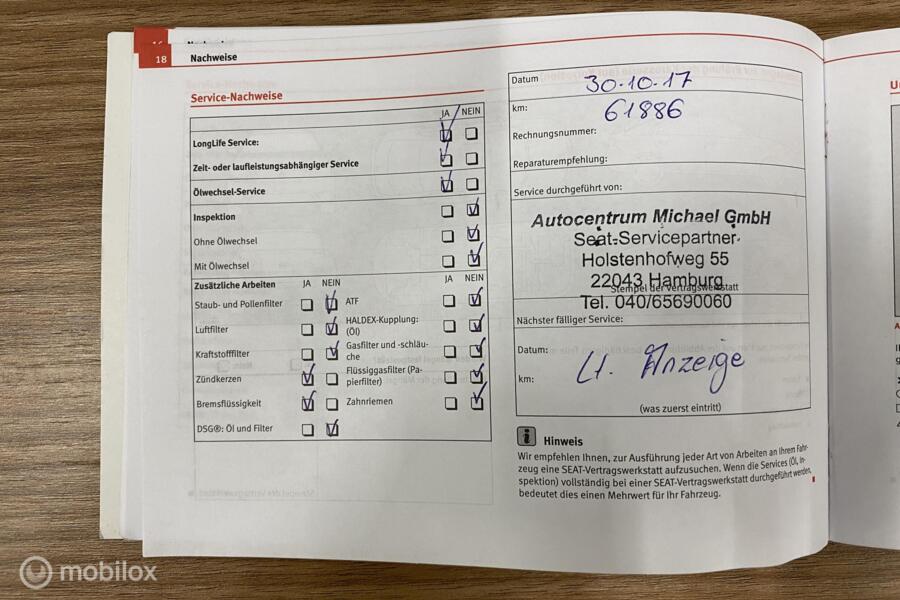 18
Nachweise
Service-Nachweise
JA NEIN
LongLife Service:
Zeit- oder laufleistungsabhängiger Service
Ölwechsel-Service
Inspektion
Ohne Ölwechsel
Mit Ölwechsel
Zusätzliche Arbeiten JA NEIN JA NEIN
Staub- und Pollenfilter ATF
Luftfilter HALDEX-Kupplung:
(Öl)
Kraftstofffilter Gasfilter und -schläu-
che
Zündkerzen Flüssiggasfilter (Pa-
pierfilter)
Bremsflüssigkeit Zahnriemen
DSG®: Öl und Filter
Datum 30.10.17
km: 61886
Rechnungsnummer:
Reparaturempfehlung:
Service durchgeführt von:
Autocentrum Michael GmbH
Seat-Servicepartner
Holstenhofweg 55
22043 Hamburg
Stempel der Vertragswerkstatt
Tel. 040/65690060
Nächster fälliger Service:
Datum:
km:
Lt. Anzeige
(was zuerst eintritt)
i Hinweis
Wir empfehlen Ihnen, zur Ausführung jeder Art von Arbeiten an Ihrem Fahr-
zeug eine SEAT-Vertragswerkstatt aufzusuchen. Wenn die Services (Öl, In-
spektion) vollständig bei einer SEAT-Vertragswerkstatt durchgeführt werden,
bedeutet dies einen Mehrwert für Ihr Fahrzeug.
mobilox